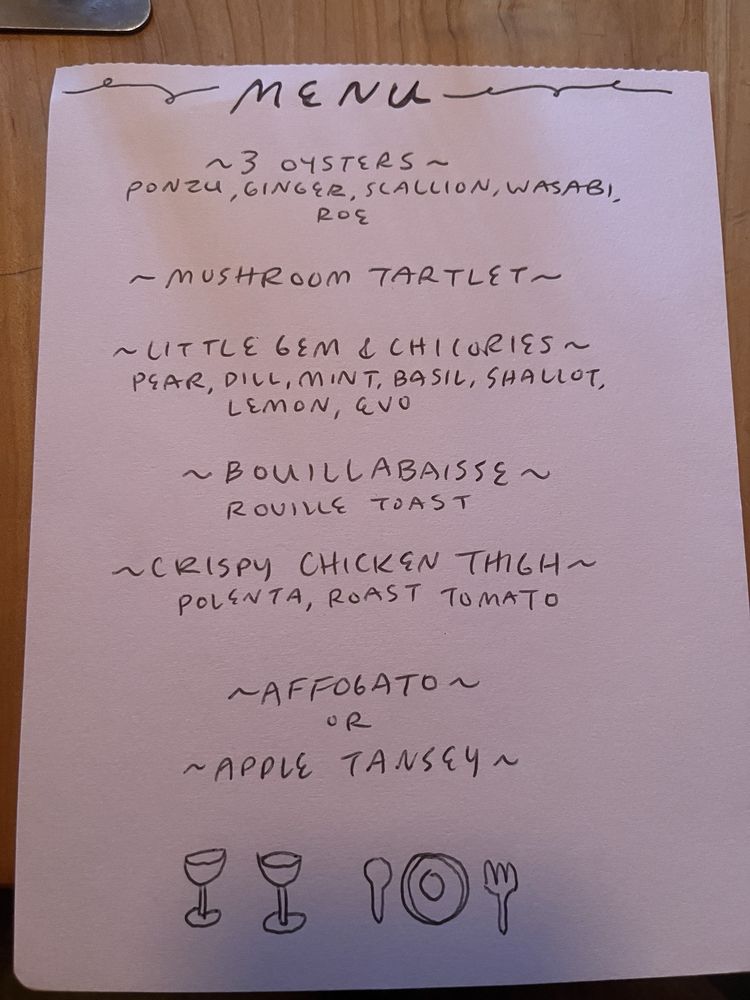 MENU
~3 OYSTERS~
PONZU, GINGER, SCALLION, WASABI,
ROE
~MUSHROOM TARTLET~
~LITTLE GEM & CHICORIES~
PEAR, DILL, MINT, BASIL, SHALLOT,
LEMON, EVO
~BOUILLABAISSE~
ROUILLE TOAST
~CRISPY CHICKEN THIGH~
POLENTA, ROAST TOMATO
~AFFOGATO~
OR
~APPLE TANSEY~